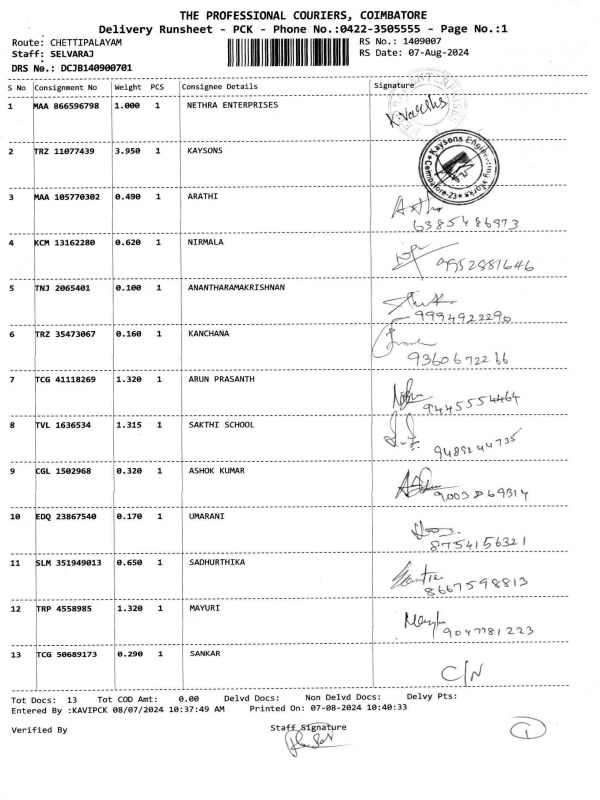 THE PROFESSIONAL COURIERS, COIMBATORE
Delivery Runsheet - PCK - Phone No.:0422-3505555 - Page No.:1
Route: CHETTIPALAYAM RS No.: 1409007
Staff: SELVARAJ RS Date: 07-Aug-2024
DRS No.: DCJB140900701
S No Consignment No Weight PCS Consignee Details Signature
1 MAA 866596798 1.000 1 NETHRA ENTERPRISES
2 TRZ 11077439 3.950 1 KAYSONS Kaysons Engineering Works Coimbatore-23
3 MAA 105770302 0.490 1 ARATHI
6385486973
4 KCM 13162280 0.620 1 NIRMALA
9952881646
5 TNJ 2065401 0.100 1 ANANTHARAMAKRISHNAN
9994922290
6 TRZ 35473067 0.160 1 KANCHANA
9360672266
7 TCG 41118269 1.320 1 ARUN PRASANTH
9445554464
8 TVL 1636534 1.315 1 SAKTHI SCHOOL
9489244735
9 CGL 1502968 0.320 1 ASHOK KUMAR
9003869314
10 EDQ 23867540 0.170 1 UMARANI
8754156321
11 SLM 351949013 0.650 1 SADHURTHIKA
8667598813
12 TRP 4558985 1.320 1 MAYURI
9047781223
13 TCG 50689173 0.290 1 SANKAR
C/N
Tot Docs: 13 Tot COD Amt: 0.00 Delvd Docs: Non Delvd Docs: Delvy Pts:
Entered By :KAVIPCK 08/07/2024 10:37:49 AM Printed On: 07-08-2024 10:40:33
Verified By Staff Signature
1